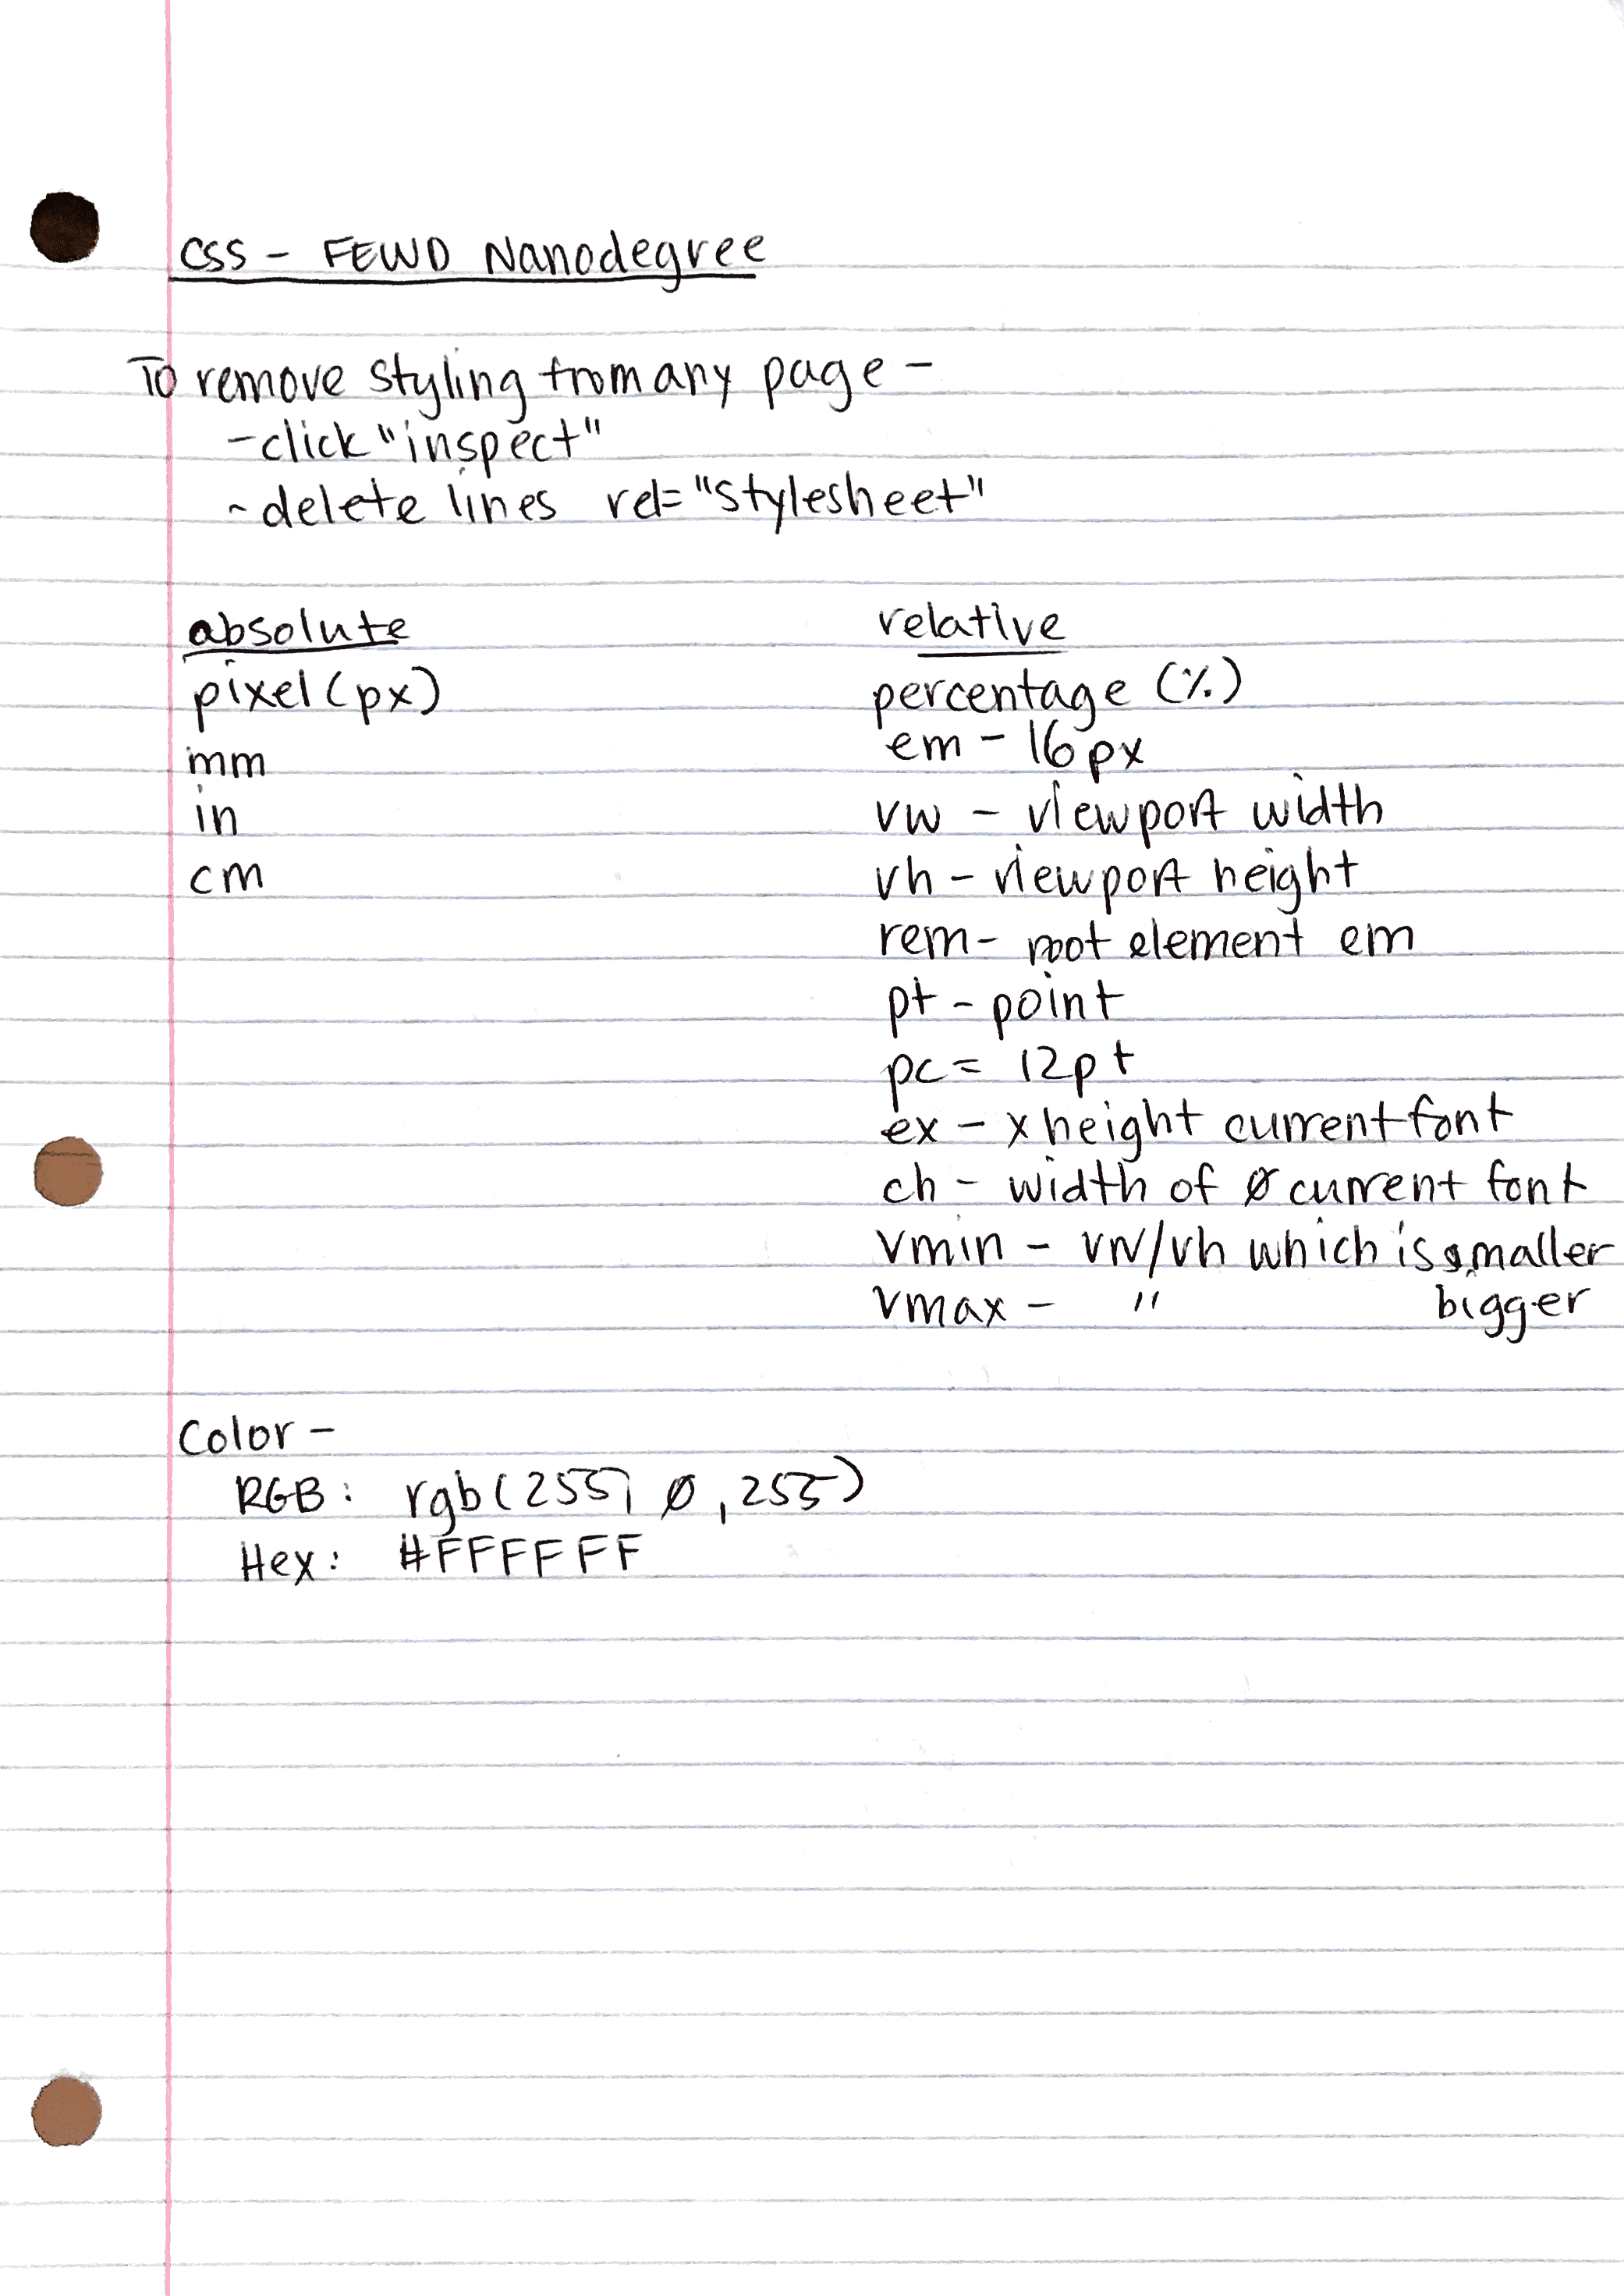 CSS - FEWD Nanodegree
To remove styling from any page -
- click "inspect"
- delete lines rel="stylesheet"
absolute
pixel (px)
mm
in
cm
relative
percentage (%)
em - 16px
vw - viewport width
vh - viewport height
rem - root element em
pt - point
pc = 12pt
ex - x height current font
ch - width of 0 current font
vmin - vw/vh which is smaller
vmax - " bigger
Color -
RGB: rgb(255, 0, 255)
Hex: #FFFFFF